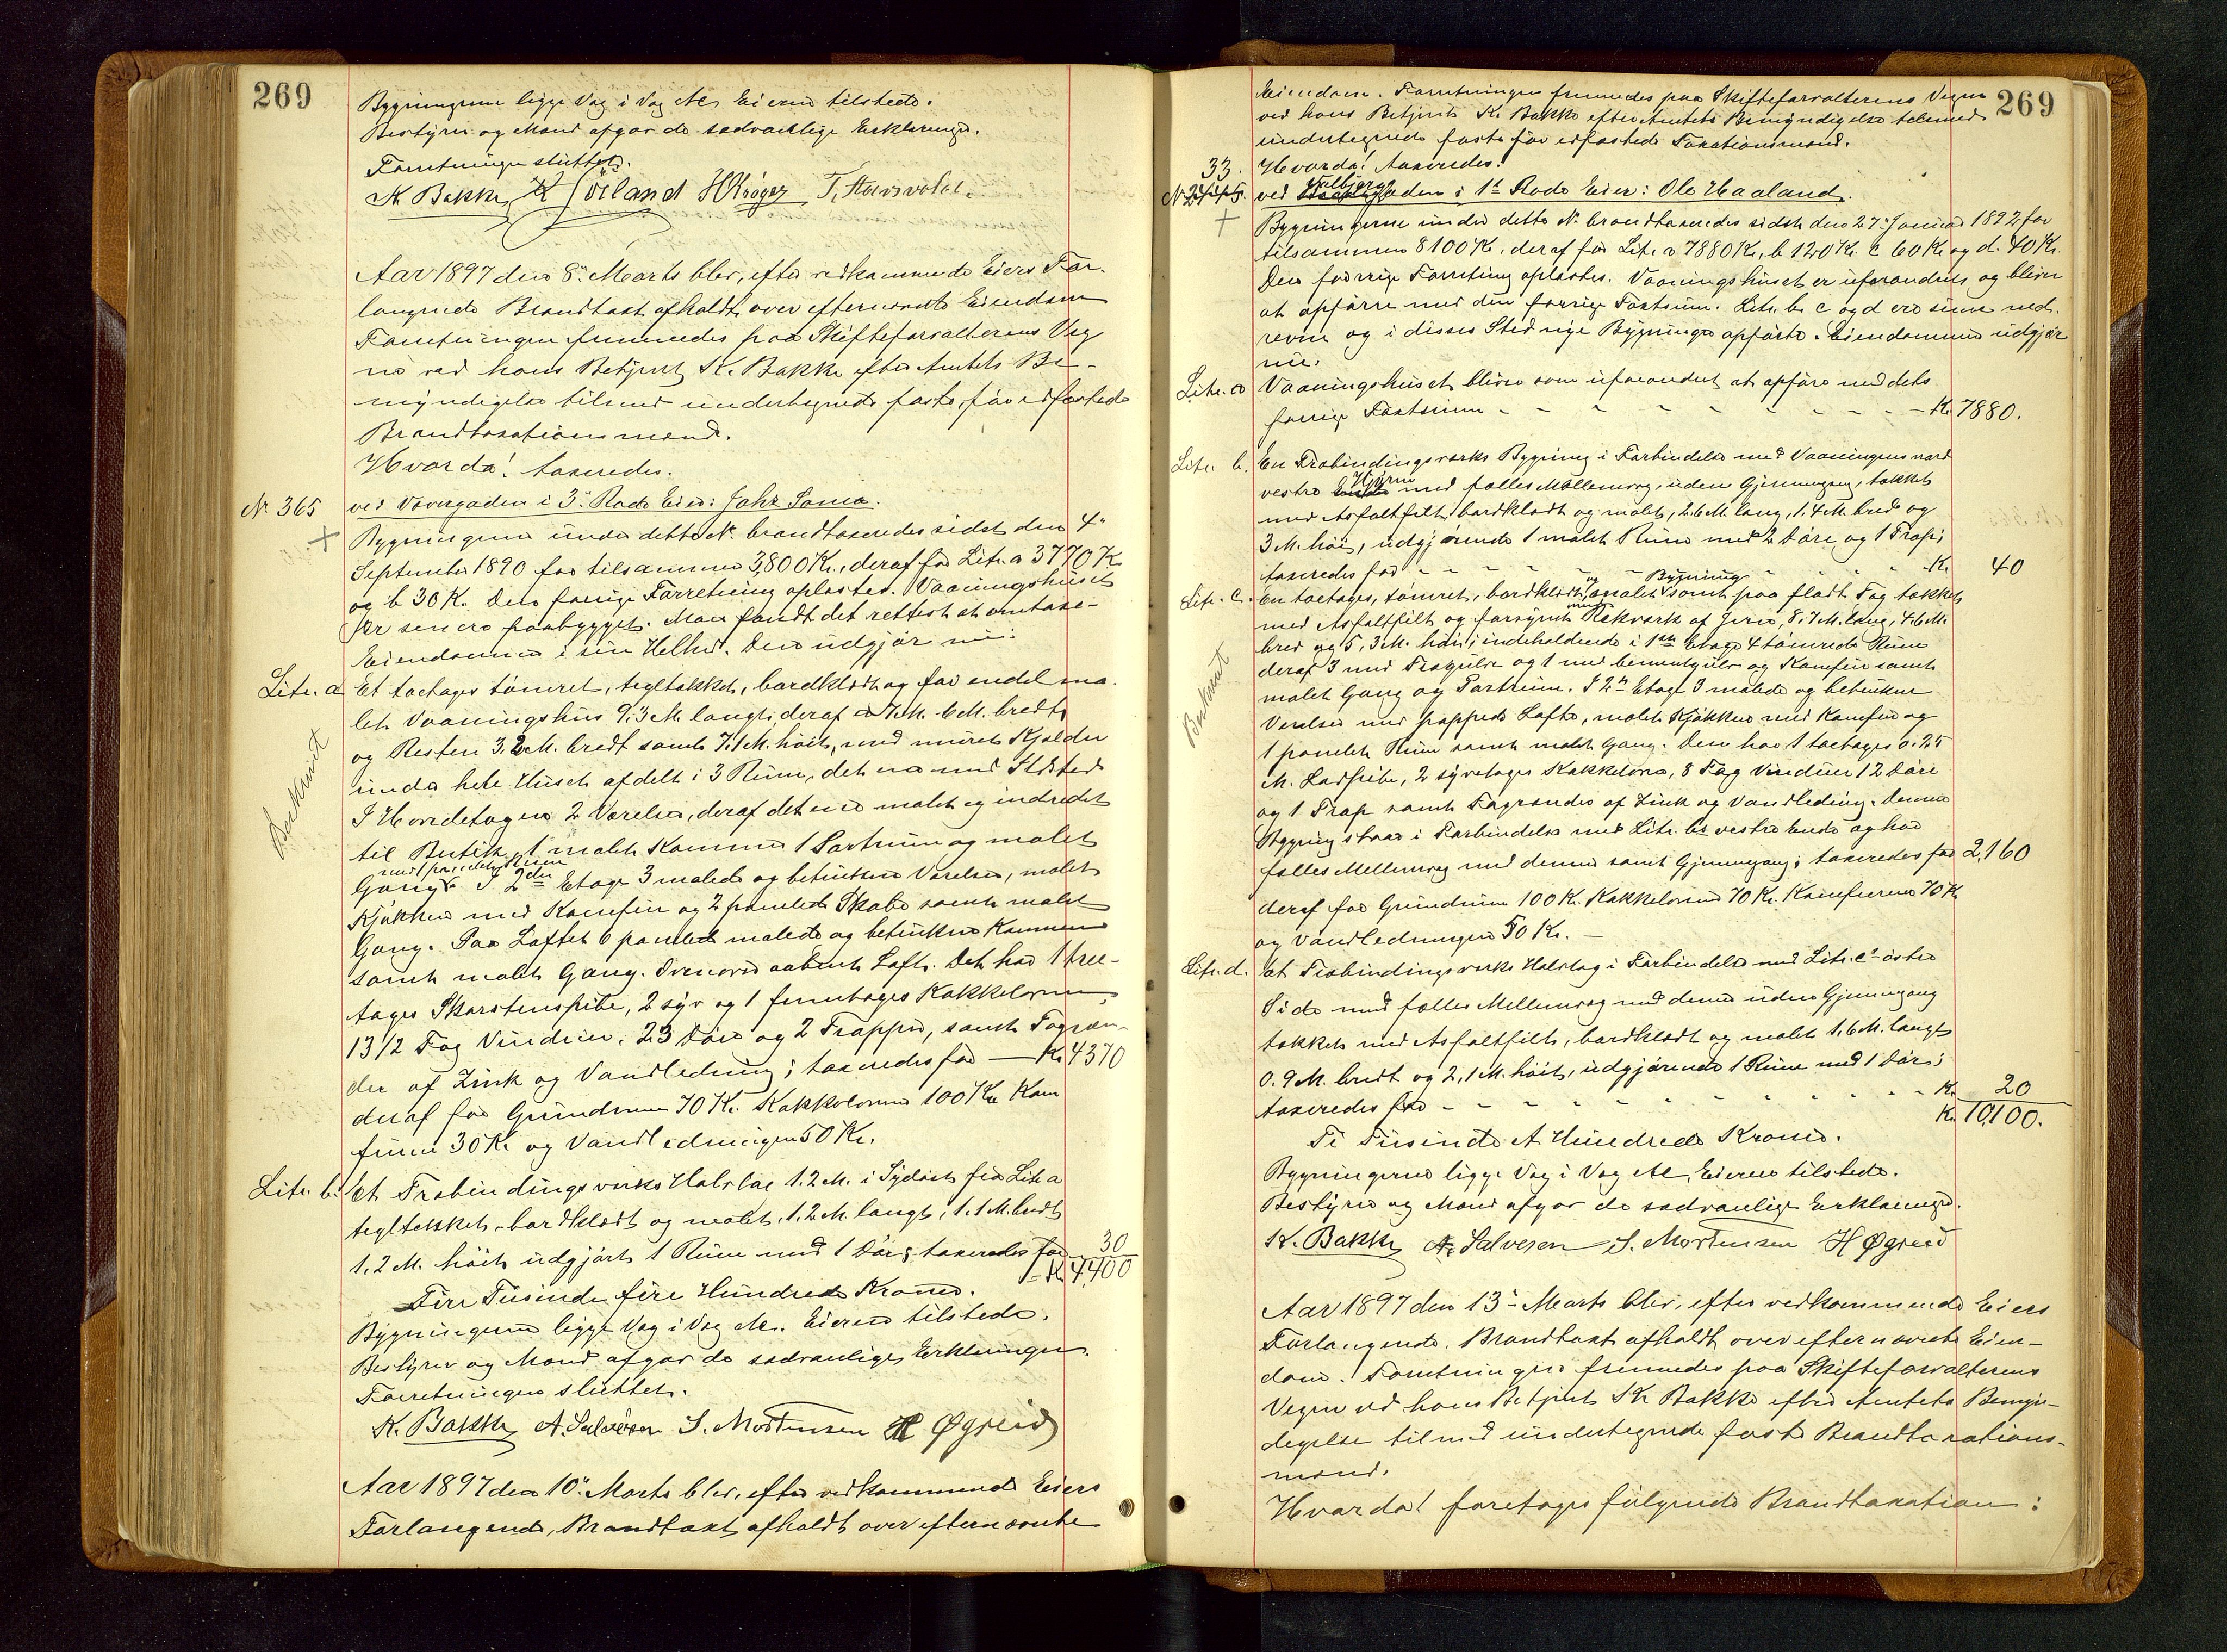 269
Bygningerne ligge Væg i Væg Alt. Eieren tilstede.
Bestyrer og Mænd afgav de sædvanlige Erklæringer.
Forretningen sluttet.
K. Bakke H Krøger
Aar 1897 den 8de Marts blev, efter vedkommende Eiers For-
langende Brandtaxt afholdt over efternævnte Eiendom
Forretningen fremmedes paa Skifteforvalterens Veg
ne ved hans Betjent K. Bakke efter Amtets Be-
myndigelse tilmed undertegnede faste, før edfæstede
Brandtaxationsmænd.
Hvorda! taxeredes.
No 365 ved Vævergaden i 3die Rode Eier: Johs Soma.
Bygningerne under dette No brandtaxeredes sidst den 4de
September 1890 for tilsammen 3,800 Kr., deraf for Litr. a 3770 K
og b 30 K. Den forrige Forretning oplæstes. Vaaningshuset
er senere paabygget. Man fandt det rettest at omtaxe-
re Eiendommen i sin Helhed. Den udgjør nu:
Litr. a Et toetages tømret, tegltækket, bordklædt og for endel ma-
let Vaaningshus 9,3 M. langt, deraf 7 M. 6 M. bredt
og Resten 3.2 M. bredt samt 7,1 M. høit, med muret Kjælder
under hele Huset afdelt i 3 Rum, det ene med Ildsted
I Hovedetagen 2 Værelser, deraf det ene malet og indredet
til Butik, 1 malet Kammer 1 Portrum og malet
med 1 panelet Rum
Gang. I 2den Etage 3 malede og betrukne Værelser, malet
Kjøkken med Komfur og 2 panelede Skabe samt malet
Gang. Paa Loftet 6 panelede malede og betrukne Kammer
samt malet Gang. Ovenover aabent Loft. Det har 1 tree-
tages Skorstenspibe, 2 syv og 1 femetages Kakkelovne,
13 1/2 Fag Vinduer, 23 Døre og 2 Trapper, samt Tagren-
der af Zink og Vandledning; taxeredes for — Kr 4370
deraf for Grundmur 70 Kr. Kakkelovne 100 Kr Kom
furen 30 Kr og Vandledningen 50 Kr.
Litr. b. Et Træbindingsverks Halvtag 1.2 M. i Sydøst fra Litr a
tegltækket, bordklædt og malet, 1,2 M. langt, 1,1 M. bredt
1,2 M. høit udgjørt 1 Rum med 1 Dør; taxeredes for 30
= Kr 4,400
Fire Tusinde fire Hundrede Kroner.
Bygningerne ligge Væg i Væg Alt. Eieren tilstede.
Bestyrer og Mænd afgav de sædvanlige Erklæringer.
Forretningen sluttet.
K. Bakke A. Salvesen S. Mortensen H Øgreid
Aar 1897 den 10de Marts blev, efter vedkommende Eiers
Forlangende, Brandtaxt afholdt over efternævnte
Beskrevet
269
Eiendom. Forretningen fremmedes paa Skifteforvalterens Vegne
ved hans Betjent K. Bakke efter Amtets Bemyndigelse tilmed
undertegnede faste før edfæstede Taxationsmænd.
33. Hvorda! taxeredes:
Valbjerg
ved gaden i 1ste Rode Eier: Ole Haaland.
Bygningerne under dette No brandtaxeredes sidst den 27de Januar 1892 for
tilsammen 8100 Kr. deraf for Litr. a 7880 Kr., b 120 Kr. c 60 Kr og d. 40 Kr.
Den forrige Forretning oplæstes. Vaaningshuset er uforandret og bliver
at opføre med den forrige Taxtsum. Litr. b. c og d ere senere ned-
revne og i disses Sted nye Bygninger opførte. Eiendommen udgjør
nu:
Litr. a Vaaningshuset bliver som uforandret at opføre med dets
forrige Taxtsum - - - - - Kr. 7880.
Litr. b. En Træbindingsverks Bygning i Forbindelse med Vaaningens nord
Hjørne
vestre med fælles Mellemvæg, uden Gjennemgang, tækket
med Asfaltfilt, bordklædt og malet, 2.6 M. lang, 1.4 M. bred og
3 M. høi, udgjørende 1 malet Rum med 2 Døre og 1 Trap;
taxeredes for - - - - - Kr. 40
og Bygning
Litr. c. En toetages, tømret, bordklædt, malet samt paa fladt Tag tækket
med
med Asfaltfilt og forsynet Rækværk af Jern, 8,7 M. lang, 4.6 M.
bred og 5,3 M. høi; indeholdende i 1ste Etage 4 tømrede Rum
deraf 3 med Trægulv og 1 med Cementgulv og Komfur samt
malet Gang og Portrum. I 2den Etage 3 malede og betrukne
Værelser med pappede Lofte, malet Kjøkken med Komfur og
1 panelet Rum samt malet Gang. Den har 1 toetages 0.25
M. Lodpibe, 2 syvetages Kakkelovne, 8 Fag Vinduer 12 Døre
og 1 Trap samt Tagrender af Zink og Vandledning. Denne
Bygning staar i Forbindelse med Litr. bs vestre Ende og har
fælles Mellemvæg med denne samt Gjennemgang; taxeredes for 2,160
deraf for Grundmur 100 Kr. Kakkelovne 70 Kr. Komfurene 70 Kr
og Vandledningen 50 Kr. —
Litr. d. Et Træbindingsverks Halvtag i Forbindelse med Litr. cs østre
Side med fælles Mellemvæg med denne uden Gjennemgang
tækket med Asfaltfilt, bordklædt og malet 1,6 M. langt
0.9 M. bredt og 2,1 M. høit, udgjørende 1 Rum med 1 Dør;
taxeredes for - - - - - Kr. 20
Kr. 10,100.
Ti Tusinde et Hundrede Kroner.
Bygningerne ligge Væg i Væg Alt. Eieren tilstede.
Bestyrer og Mænd afgav de sædvanlige Erklæringer.
K. Bakke A. Salvesen S. Mortensen H Øgreid
Aar 1897 den 13de Marts blev, efter vedkommende Eiers
Forlangende, Brandtaxt afholdt over efternævnte Eien-
dom. Forretningen fremmedes paa Skifteforvalterens
Vegne ved hans Betjent K. Bakke efter Amtets Bemyn-
digelse tilmed undertegnede faste Brandtaxations-
mænd.
Hvorda! foretages følgende Brandtaxation:
Beskrevet